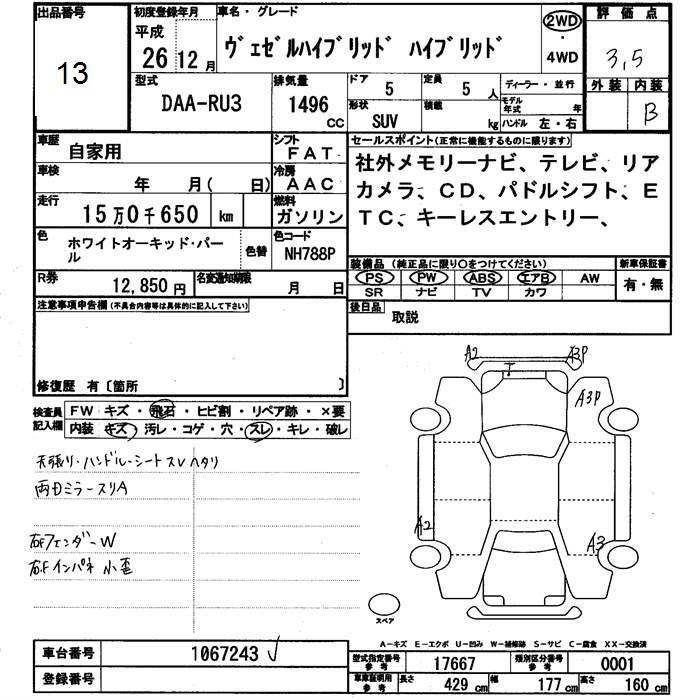 出品番号
13
初度登録年月
平成
26 年 12 月
車名・グレード
ヴェゼルハイブリッド ハイブリッド
2WD
・
4WD
評価点
3,5
外装 内装
B
型式
DAA-RU3
排気量
1496 CC
ドア 5
定員 5 人
形状 SUV
積載 kg
ディーラー・並行
モデル年式 年
ハンドル 左・右
車歴
自家用
シフト
FAT
車検
年 月( 日)
冷房
AAC
走行
15万0千650 km
燃料
ガソリン
色
ホワイトオーキッド・パール
色替
色コード
NH788P
R券
12,850 円
名変通知期限
月 日
セールスポイント(正常に機能するものに限ります)
社外メモリーナビ、テレビ、リア
カメラ、CD、パドルシフト、E
TC、キーレスエントリー、
装備品 (純正品に限り○をつけてください)
PS PW ABS エアB AW
SR ナビ TV カワ
新車保証書
有・無
後日品
取説
注意事項申告欄(不具合内容等は具体的に記入して下さい)
修復歴 有〔箇所 〕
検査員
記入欄
FW キズ・飛石・ヒビ割・リペア跡・×要
内装 キズ・汚レ・コゲ・穴・スレ・キレ・破レ
天張リ・ハンドル・シートスレヘタリ
両Dミラースリ A
右Fフェンダー W
右Fインパネ 小歪
A2
A3P
T
A3P
A2
A3
スペア
A-キズ E-エクボ U-凹み W-補修跡 S-サビ C-腐食 XX-交換済
車台番号
1067243
登録番号
型式指定番号
参考
17667
類別区分番号
参考
0001
車庫証明用
参考
長さ 429 cm 幅 177 cm 高さ 160 cm